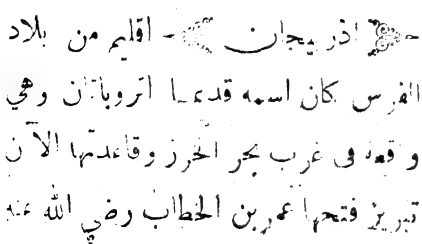 ﴿اذربيجان﴾ اقليم من بلاد
الفرس كان اسمه قديما اتروباتان وهي
واقعة في غرب بحر الخرز وقاعدتها الآن
تبريز فتحها عمر بن الخطاب رضي الله عنه